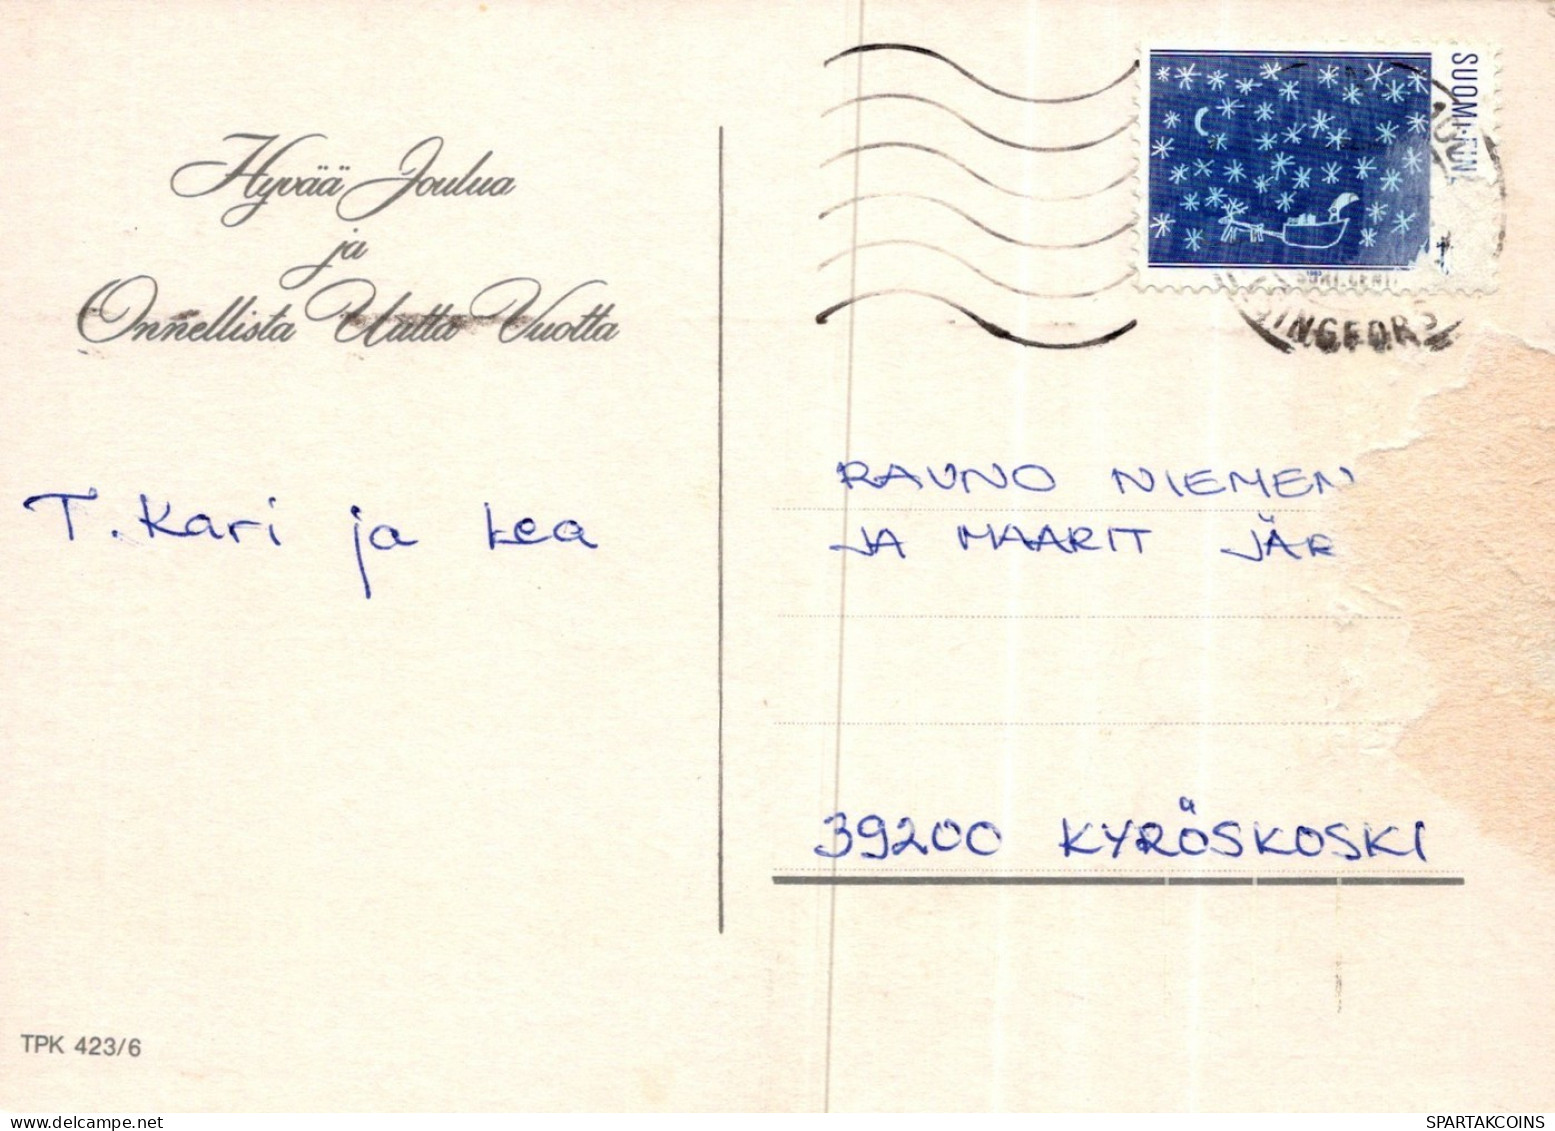 Hyvää Joulua
ja
Onnellista Uutta Vuotta
T. Kari ja Lea
SUOMI-FINL
INGFORS
RAUNO NIEMEN
JA MAARIT JÄR
39200 KYRÖSKOSKI
TPK 423/6
SPARTAKCOINS